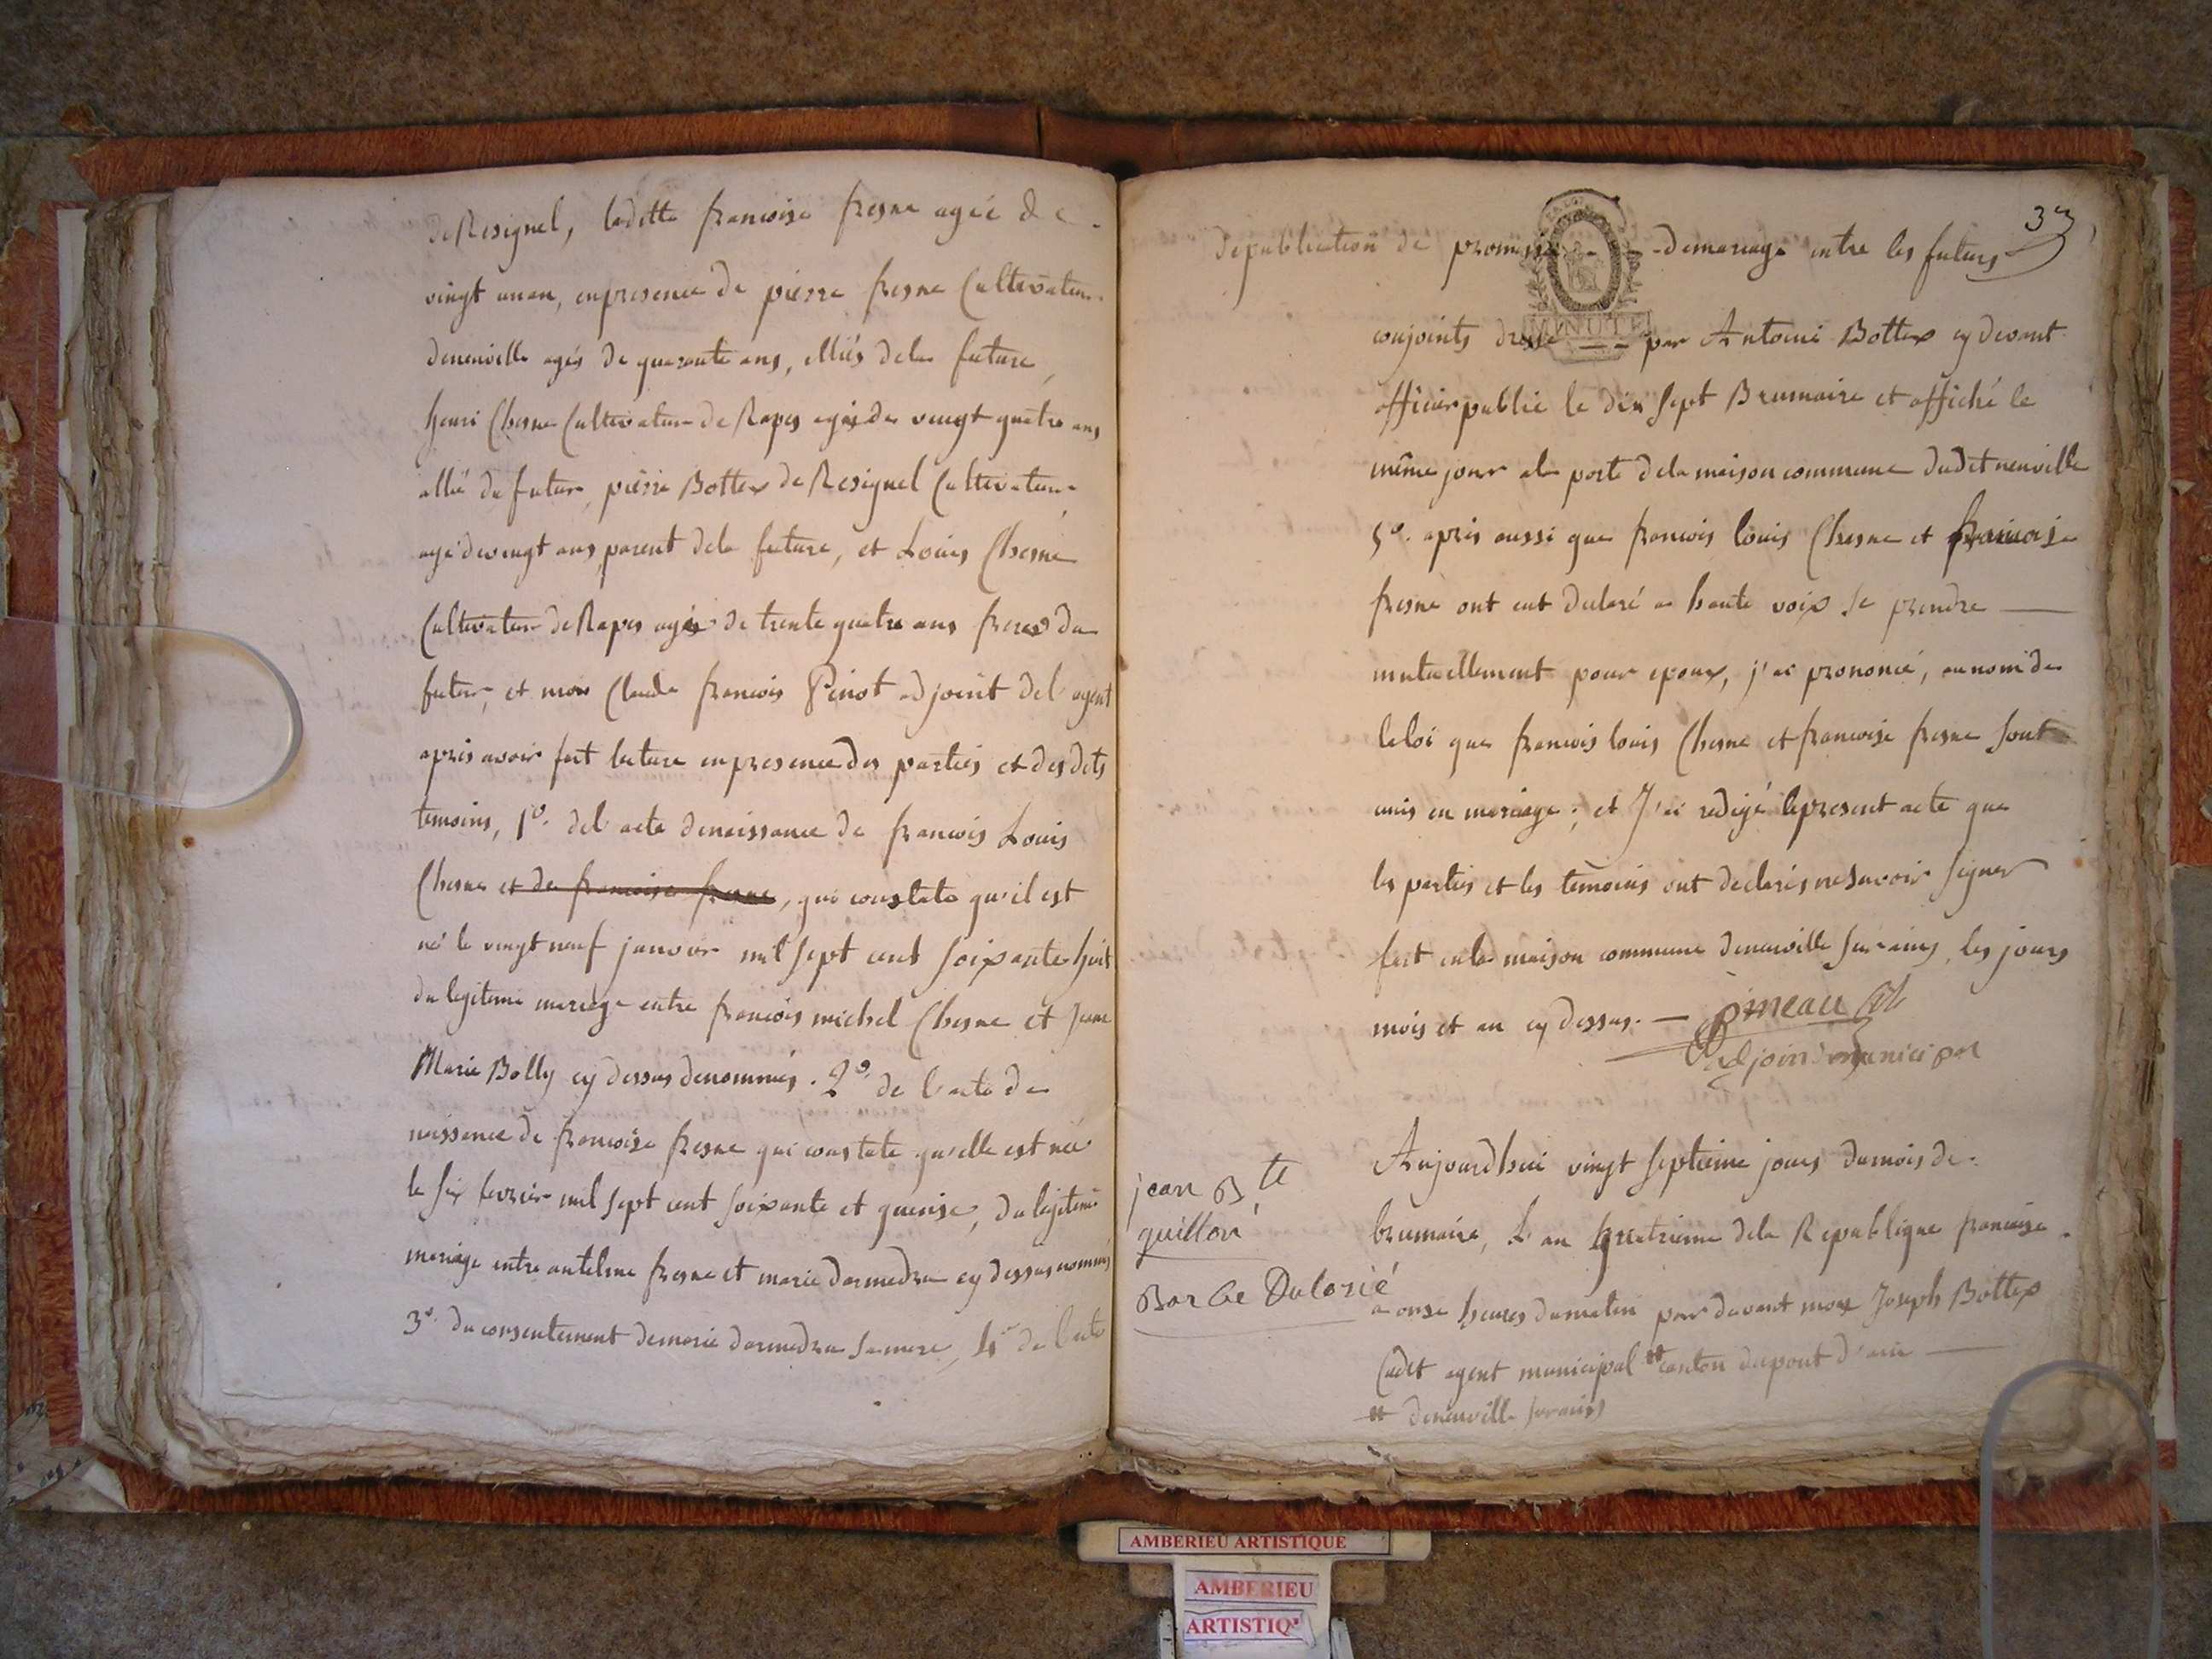 de Resignel, ladette francoise fresne agée de
vingt un an, enpresence de pierre fresne Cultivateur
deneuville agés de quarante ans, alliés dela future,
henri Chesne Cultivateur de Rapes agés de vingt quatre ans
allié du futur, pierre Bottex de Resignel Cultivateur,
agé devingt ans parent dela future, et Louis Chesne
Cultivateur de Rapes agés de trente quatre ans freres du
futur, et moi Claude francois Pinot adjoint del agent
apres avoir fait lecture enpresence des parties et des dets
temoins, 1º. del acte denaissance de francois Louis
Chesne et de francoise fresne, qui constate qu'il est
né le vingt neuf janvier mil sept cent soixante huit
du legiteme mariage entre francois michel Chesne et jeane
Marie Bolly cy dessus denommés. 2º. de l'acte de
naissance de francoise fresne qui constate qu'elle est née
le six fevrier mil sept cent soixante et quinse, du legiteme
mariage entre antelme fresne et marie darmedru cy dessus nommés
3º. du consentement demarie darmedru samere, 4º de l'acte
33
depublication de promesse demariage entre les futurs
MINUTE
conjoints dressé par Antoine Bottex cy devant
officier public le dix sept Brumaire et affiché le
même jour ala porte dela maison commune dudit neuville
5º. apres aussi que francois louis Chesne et francoise
fresne ont eut declaré a haute voix se prendre
mutuellement pour epoux, j'ai prononcé, aunom de
laloi que francois louis Chesne et francoise fresne sont
unis en mariage; et J'ai redigé lepresent acte que
les parties et les temoins ont declarés nesavoir signer
fait enla maison commune deneuville sur ains, les jours
mois et an cy dessus.
adjoint municipal
jean B.te
guillon
Barbe Dalorié
Aujourdhui vingt septieme jours dumois de
brumaire, L'an quatrieme dela Republique francaise
a onse heures dumatin par devant moi Joseph Bottex
Cadet agent municipal # canton dupont d'ain
# deneuville sur ains
AMBERIEU ARTISTIQUE
AMBERIEU
ARTISTIQ